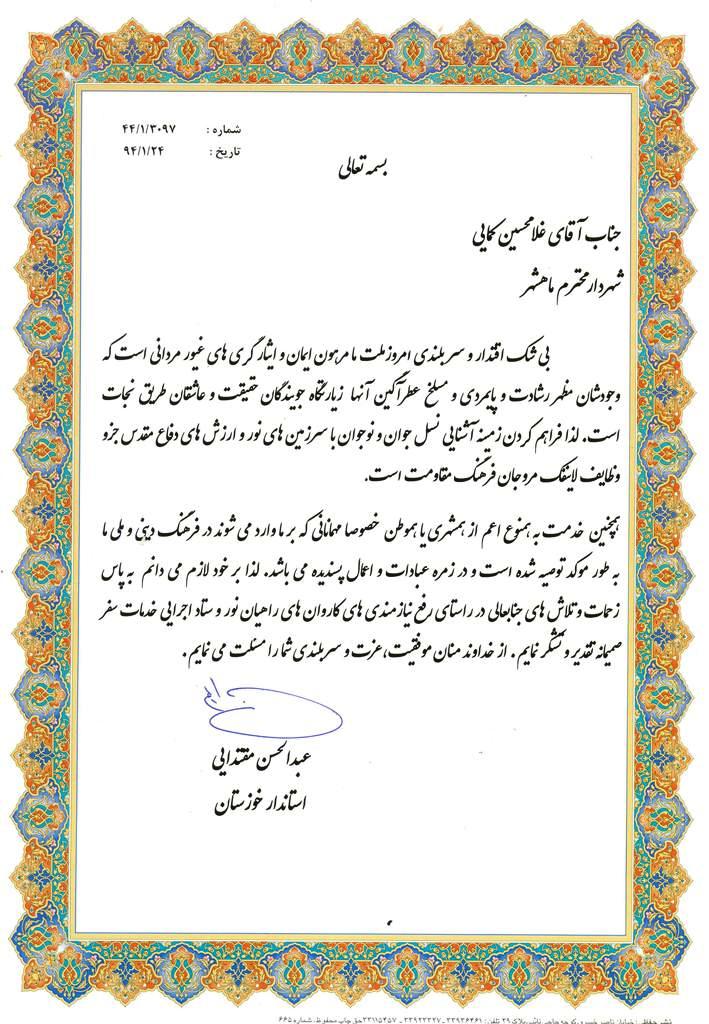 شماره : ۴۴/۱/۳۰۹۷
تاریخ : ۹۴/۱/۲۴
بسمه تعالی
جناب آقای غلامحسین کمایی
شهردار محترم ماهشهر
بی شک اقتدار و سربلندی امروز ملت ما مرهون ایمان و ایثارگری های غیور مردانی است که
وجودشان مظهر رشادت و پایمردی و مسلخ عطرآگین آنها زیارتگاه جویندگان حقیقت و عاشقان طریق نجات
است. لذا فراهم کردن زمینه آشنایی نسل جوان و نوجوان با سرزمین های نور و ارزش های دفاع مقدس جزو
وظایف لاینفک مروجان فرهنگ مقاومت است.
همچنین خدمت به همنوع اعم از همشهری یا هموطن خصوصا مهمانانی که بر ما وارد می شوند در فرهنگ دینی و ملی ما
به طور موکد توصیه شده است و در زمره عبادات و اعمال پسندیده می باشد. لذا بر خود لازم می دانم به پاس
زحمات و تلاش های جنابعالی در راستای رفع نیازمندی های کاروان های راهیان نور و ستاد اجرایی خدمات سفر
صمیمانه تقدیر و تشکر نمایم. از خداوند منان موفقیت، عزت و سربلندی شما را مسئلت می نمایم.
عبدالحسن مقتدایی
استاندار خوزستان
خیابان ناصرخسرو، کوچه حاج نایب، پلاک ۲۹ تلفن: ۳۳۹۳۶۴۶۱ - ۳۳۹۲۲۳۲۷ - ۳۳۱۱۵۴۵۷ حق چاپ محفوظ، شماره ۶۶۵